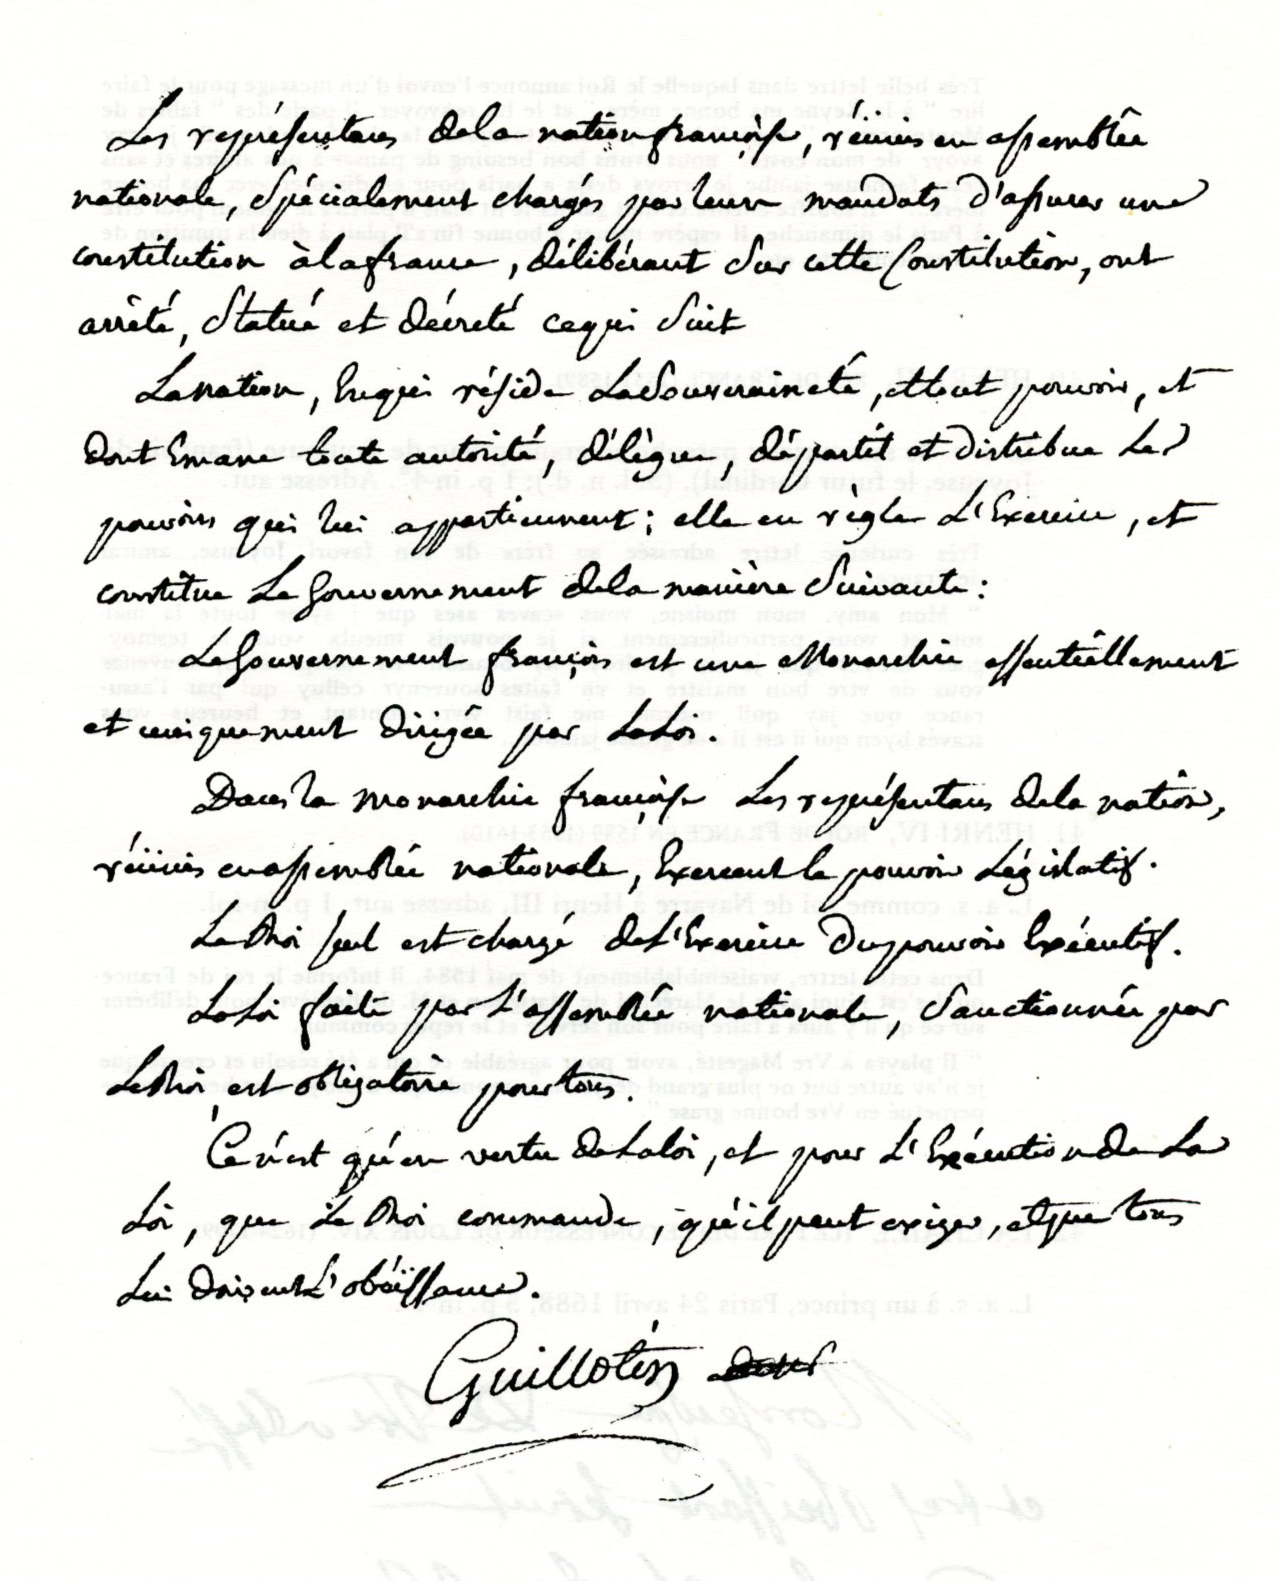 Les représentans de la nation françoise, réünis en assemblée
nationale, spécialement chargés par leurs mandats d'assurer une
constitution à la france, délibérant sur cette Constitution, ont
arrêté, statué et décreté ce qui suit
La nation, En qui réside La Souveraineté, et tout pouvoir, et
dont Emane toute autorité, délègue, départit et distribue Les
pouvoirs qui lui appartiennent; elle en règle L'Exercice, et
constitue Le Gouvernement de la manière suivante:
Le Gouvernement françois est une Monarchie essentiellement
et uniquement dirigée par La Loi.
Dans la monarchie françoise Les représentans de la nation,
réünis en assemblée nationale, Exercent le pouvoir Législatif.
Le Roi seul est chargé de L'Exercice du pouvoir Exécutif.
La Loi faite par L'assemblée nationale, sanctionnée par
Le Roi, est obligatoire pour tous.
Ce n'est qu'en vertu de La loi, et pour L'Exécution de La
Loi, que Le Roi commande, qu'il peut exiger, et que tous
Lui doivent L'obéïssance.
Guillotin